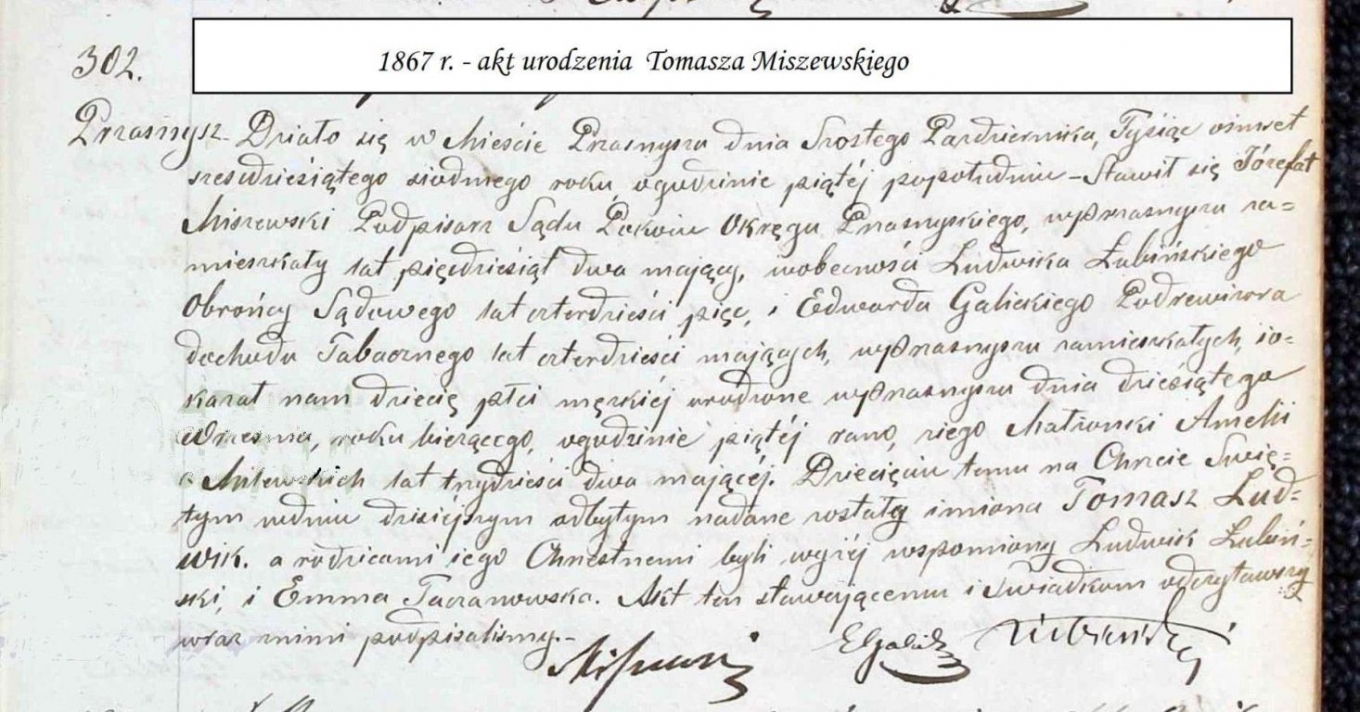 1867 r. - akt urodzenia Tomasza Miszewskiego
302.
Przasnysz - Działo się w Mieście Przasnyszu dnia Szostego Pazdziernika, Tysiąc osmset
szesdziesiątego siodmego roku ogodzinie piątéj popołudniu - Stawił się Józefat
Miszewski Podpisarz Sądu Pokoiu Okręgu Przasnyskiego, wPrzasnyszu za=
mieszkały lat pięcdziesiąt dwa maiący, wobecności Ludwika Łubińskiego
Obrońcy Sądowego lat czterdzieści pięc, i Edwarda Galickiego Podrewizora
dochodu Tabacznego lat czterdzieści maiących, wPrzasnyszu zamieszkałych, io=
kazał nam dziecię płci męzkiéj urodzone wPrzasnyszu dnia dziesiątego
Wrzesnia, roku bierzącego, ogodzinie piątéj rano, ziego Małżonki Amelii
z Milewskich lat trzydzieści dwa maiącéj. Dziecięciu temu na Chrzcie Swię=
tym wdniu dzisiejszym odbytym nadane zostały imiona Tomasz Lud=
wik. a rodzicami iego Chrzestnemi byli wyżéj wspomiony Ludwik Łubiń=
ski, i Emma Taczanowska. Akt ten stawaiącemu i Swiadkom odczytawszy
wraz znimi podpisalismy.-
Miszewski EGalicki